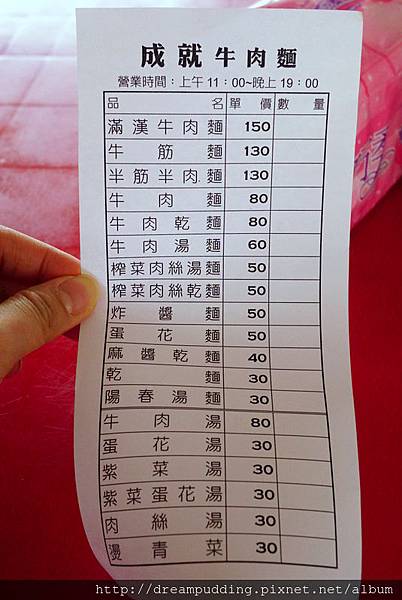 成就牛肉麵
營業時間：上午11：00~晚上19：00
品名 單價 數量
滿漢牛肉麵 150
牛筋麵 130
半筋半肉麵 130
牛肉麵 80
牛肉乾麵 80
牛肉湯麵 60
榨菜肉絲湯麵 50
榨菜肉絲乾麵 50
炸醬麵 50
蛋花麵 50
麻醬乾麵 40
乾麵 30
陽春湯麵 30
牛肉湯 80
蛋花湯 30
紫菜湯 30
紫菜蛋花湯 30
肉絲湯 30
燙青菜 30
http://dreampudding.pixnet.net/album